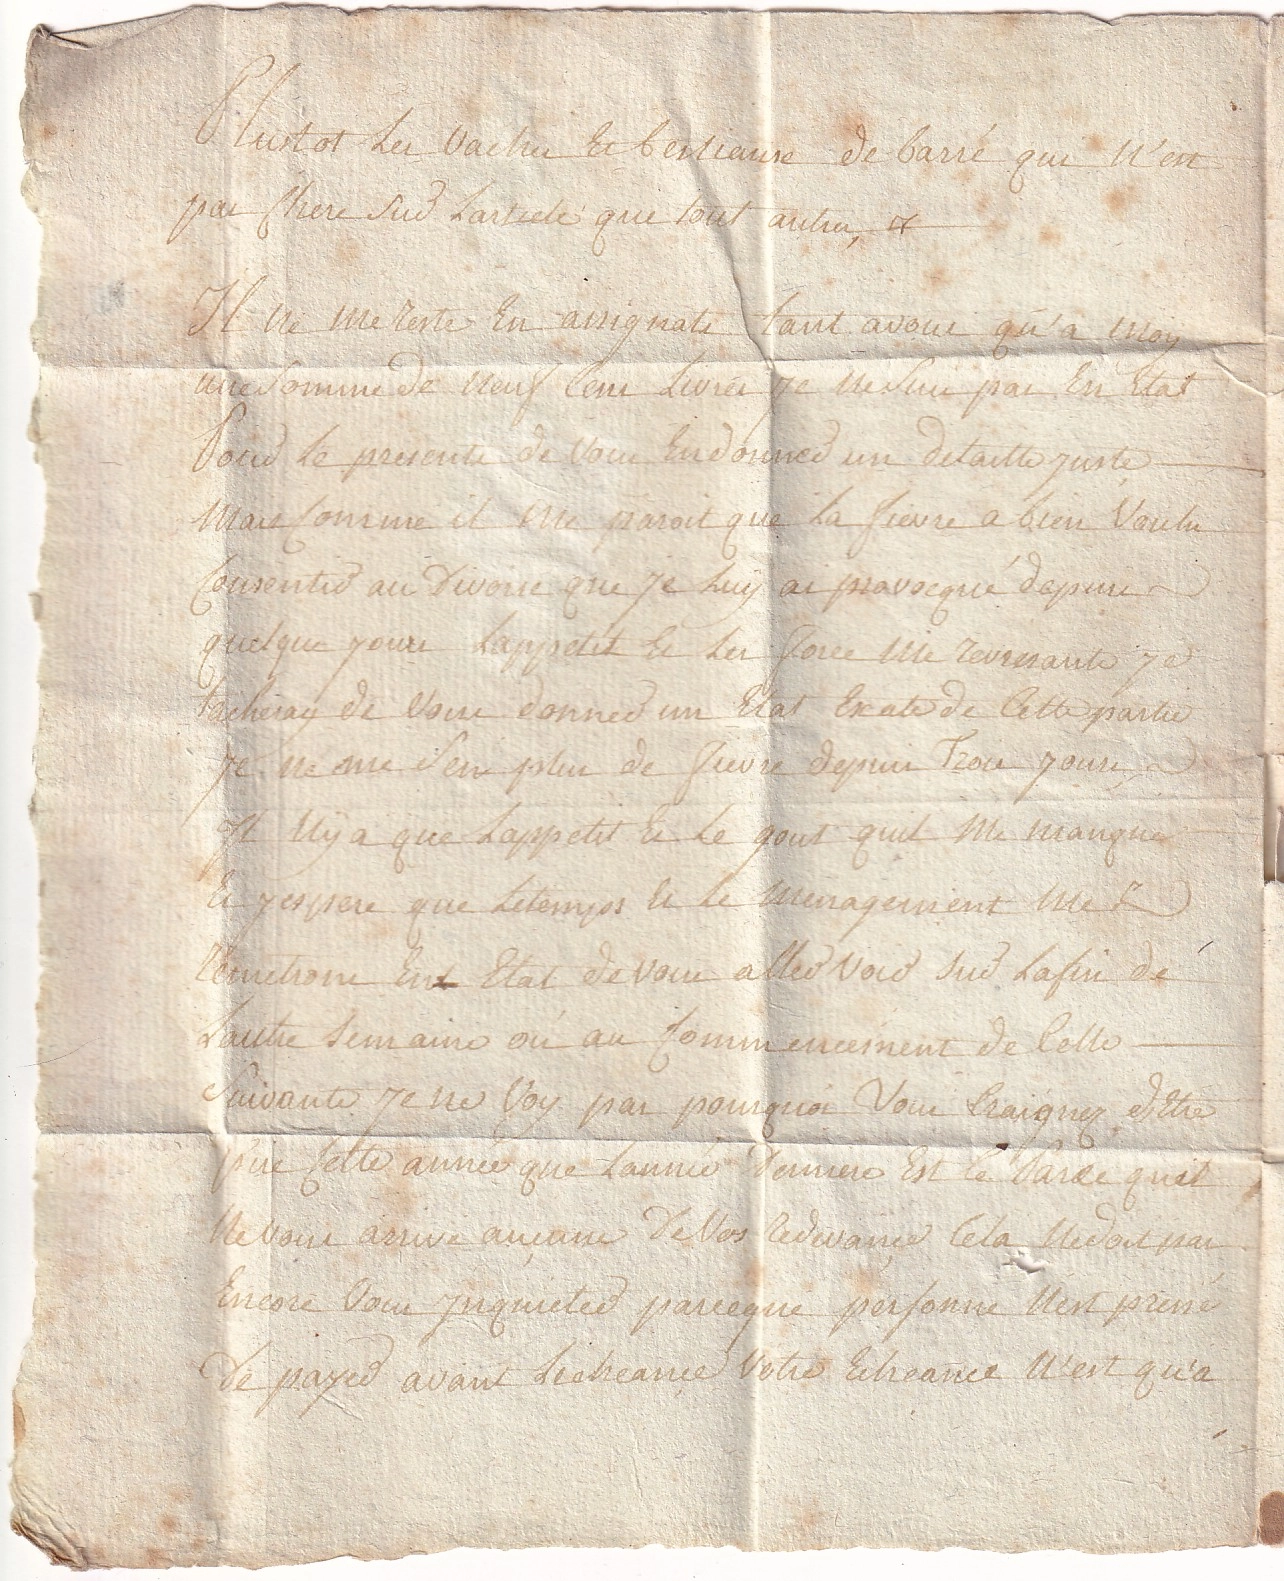 Plustot Les Vaches Et bestiause de barré qui N'est
pas Chere Sur Larticle que tout autres, &
Il Ne Me Reste En assignats tant avous qu'a Moy
une Somme de Neuf Cens Livres Je Ne Suis pas En Etat
Pour Le presente de Vous En donner un detaille juste
Mais Comme il Me paroit que La fievre a bien Voulu
Consentir au Divorse que Je Luy ai provocqué depuis
quelque jours Lappetit Et Les force Me revenante Je
tacheray de Vous donner un Etat Exate de Cette partie
Je ne me Sens plus de fievre depuis Trois jours,
Il N'y a que Lappetit Et Le gout quil Me manque
Et jespere que Letemps Et Le Menagement Me
Remetrons En Etat de vous aller Voir Sur Lafin de
Lautre Semaine où au Commencement de Celle
Suivante Je ne Voy pas pourquoi Vous Craignez dEtre
pire Cette année que Lannée Derniere Est Ce Parce quil
Ne vous arrive aucune De Vos Redevance Cela Nedoit pas
Encore Vous Inquieter parceque personne N'est pressé
De payer avant Lecheance Votre Echeance N'est qu'à